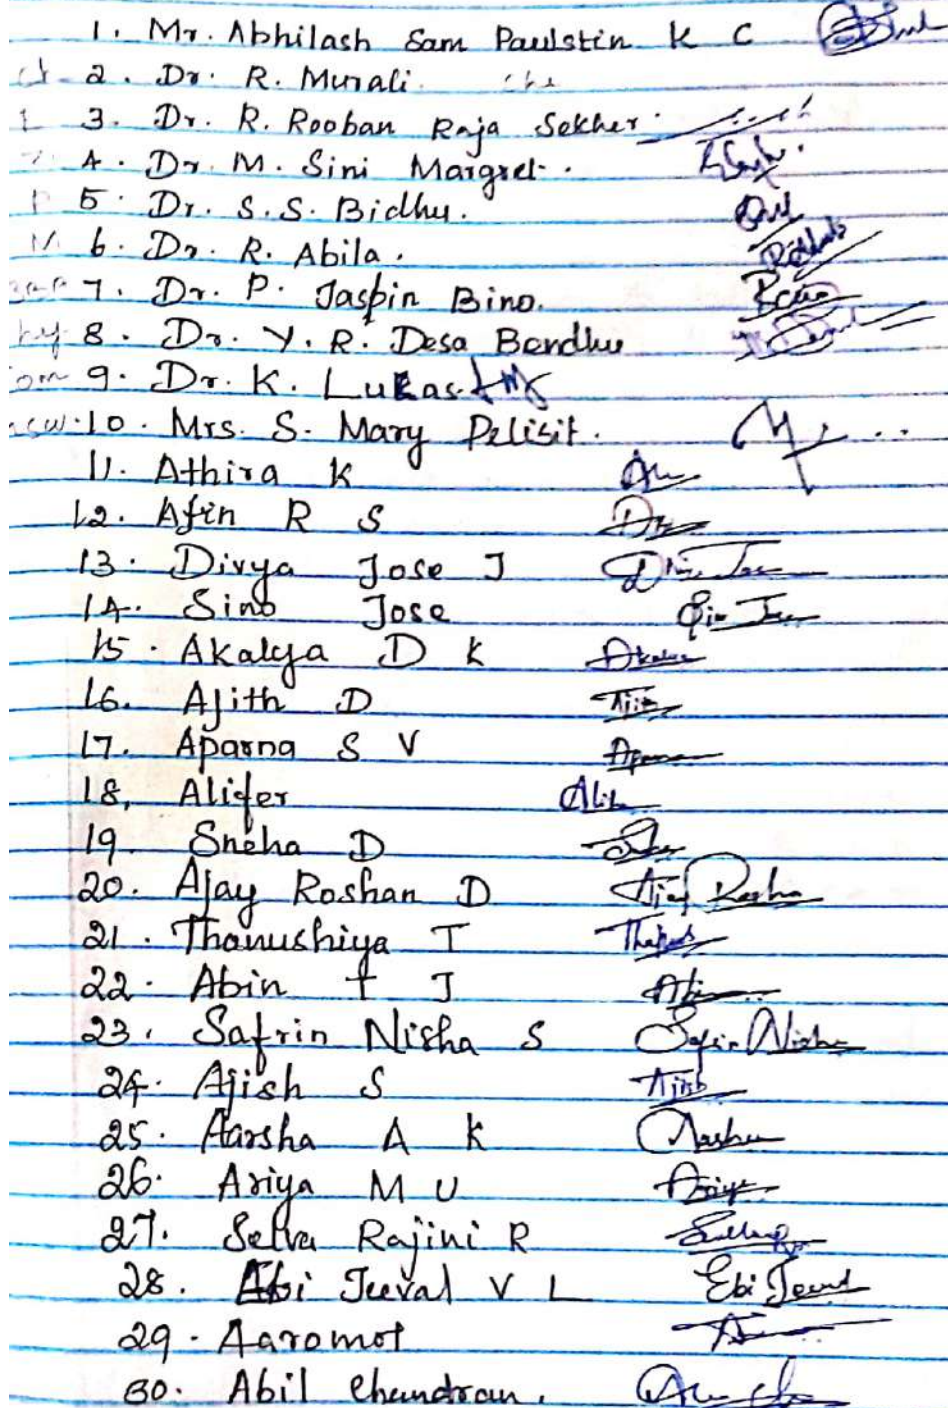 1. Mr. Abhilash Sam Paulstin K C
2. Dr. R. Murali.
3. Dr. R. Rooban Raja Sekher.
4. Dr. M. Sini Margret.
5. Dr. S.S. Bidhu.
6. Dr. R. Abila.
7. Dr. P. Jaspin Bino.
8. Dr. Y. R. Desa Bandhu
9. Dr. K. Lukas.
10. Mrs. S. Mary Pelisit.
11. Athira K
12. Afin R S
13. Divya Jose J Divya Jose
14. Sino Jose
15. Akalya D K
16. Ajith D Ajith
17. Aparna S V Aparna
18. Alifer
19. Sneha D
20. Ajay Roshan D Ajay Roshan
21. Thanushiya T
22. Abin T J Abin
23. Safrin Nisha S Safrin Nisha
24. Ajish S Ajish
25. Aarsha A K Aarsha
26. Ariya M U Ariya
27. Selva Rajini R
28. Abi Jeeval V L Ebi Jeeval
29. Aaromol
30. Abil Chandran.